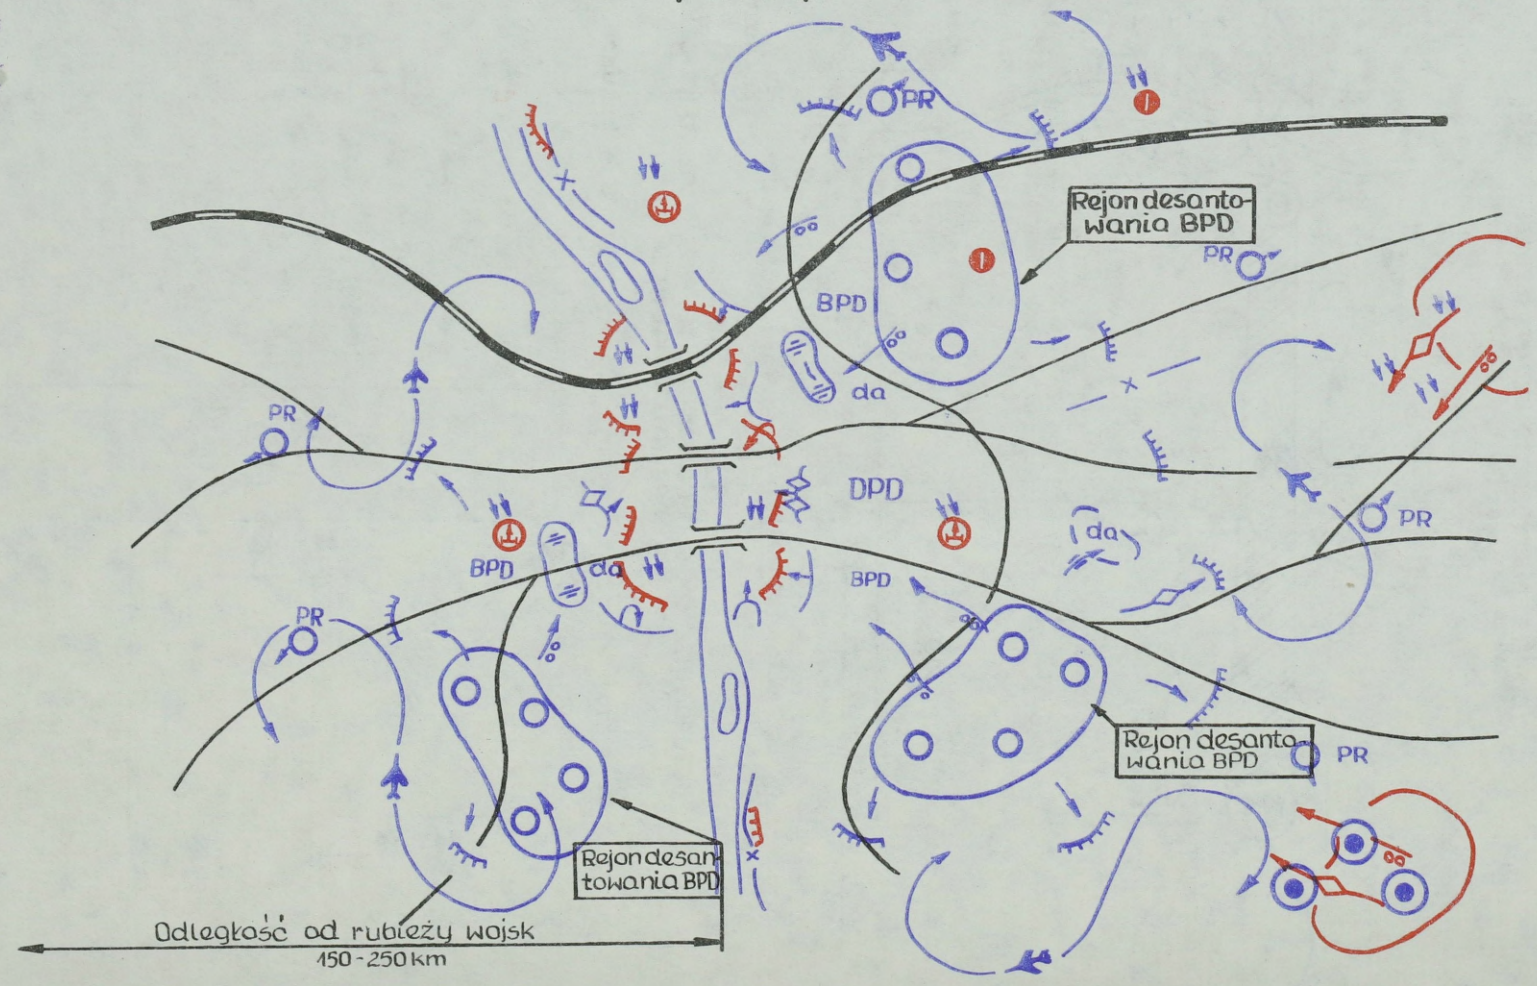 PR
Rejon desanto-
wania BPD
PR
BPD
da
PR
DPD
PR
da
BPD
da
BPD
PR
Rejon desanto-
wania BPD
PR
Rejon desan-
towania BPD
Odległość od rubieży wojsk
150-250 km